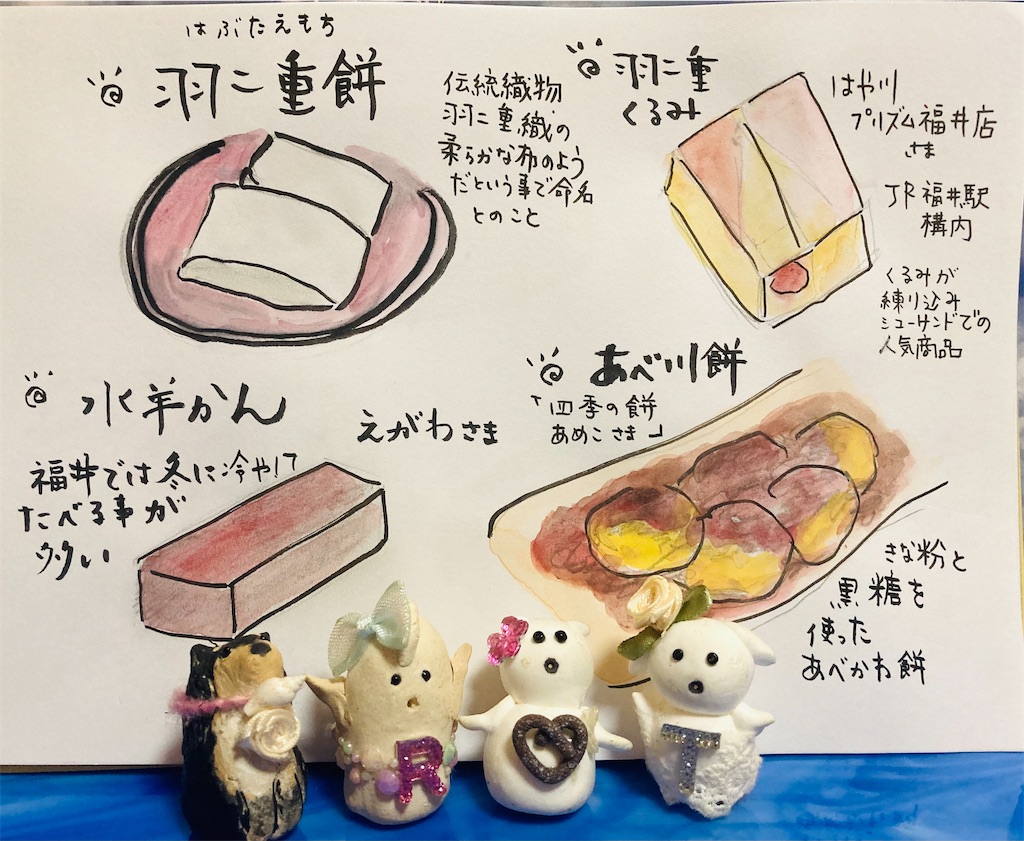 はぶたえもち
羽二重餅
伝統織物
羽二重織の
柔らかな布のよう
だという事で命名
とのこと
羽二重
くるみ
はや川
プリズム福井店
さま
JR福井駅
構内
くるみが
練り込み
シューサンドでの
人気商品
水羊かん
えがわさま
福井では冬に冷やして
たべる事が
多い
あべ川餅
「四季の餅
あめこさま」
きな粉と
黒糖を
使った
あべかわ餅
R
T